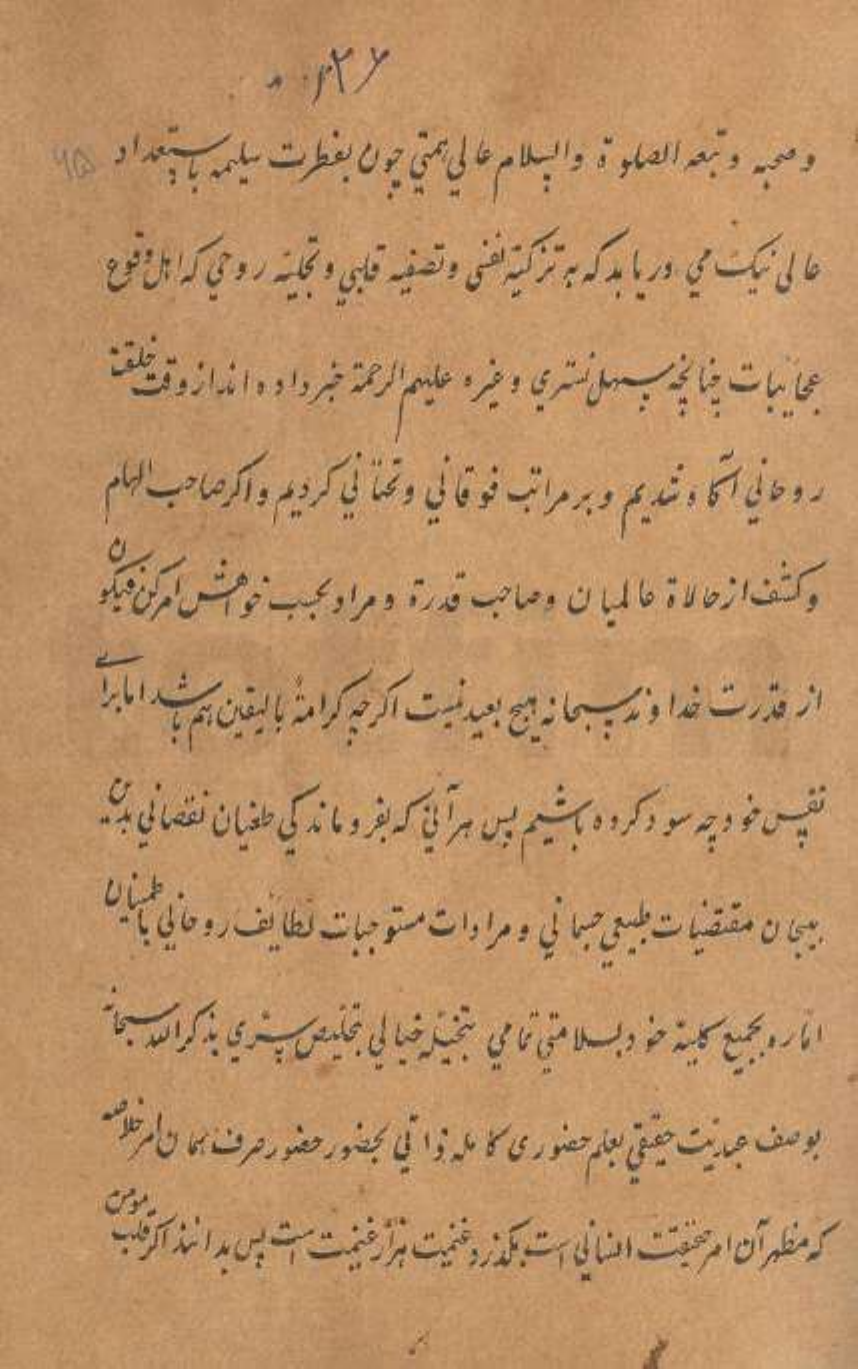 ۱۲۶
۶۵
وصحبه وتبعه الصلوة والسلام عالي همتي چون بفطرت سليمه باستعداد
عالى نيك مي دريابد كه به تزكيته نفسى وتصفيه قلبي وتجليه روحي كه اهل وقوع
عجائبات چنانچه سهل تستري وغيره عليهم الرحمة خبر داده اند از وقت خلقت
روحاني آگاه شديم وبر مراتب فوقاني وتحتاني گرديم واگر صاحب الهام
وكشف از حالاة عالميان وصاحب قدرة ومراد بحسب خواهش امر كن فيكون
از قدرت خداوند سبحانه هيچ بعيد نيست اگرچه كرامة باليقين هم باشد اما براے
نفس خود چه سود كرده باشيم پس هر آني كه بفروماندگي طغيان نقصاني بدين
مقتضيات طبيعي جسماني ومرادات مستوجبات لطائف روحاني باطمينان
اماره بجميع كليته خود بسلامتي تمامي بتخيله خيالي بتخليص سري بذكر الله سبحانه
بوصف عبديت حقيقي بعلم حضورى كامله ذاتي بحضور حضور صرف همان امر خلاصه
كه مظهر آن امر حقيقت انساني است بگذرد غنيمت هزار غنيمت است پس بدانند اگر قلب مومن